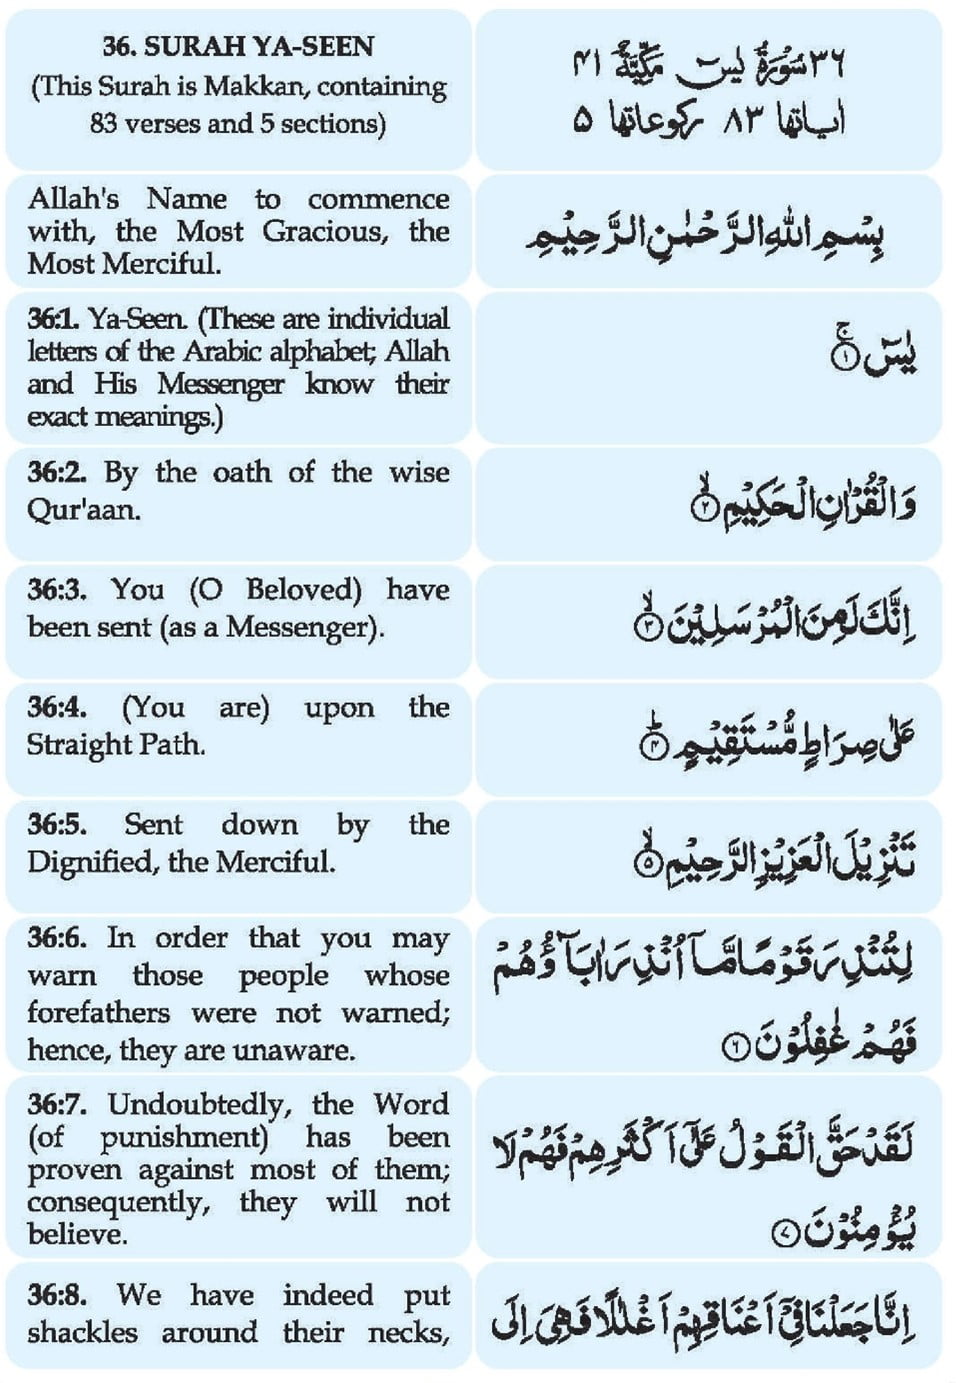 36. SURAH YA-SEEN
(This Surah is Makkan, containing
83 verses and 5 sections)
٣٦ سُوْرَةُ يٰسٓ مَكِّيَّةٌ ٤١
اٰياتها ٨٣ رکوعاتها ٥
Allah's Name to commence
with, the Most Gracious, the
Most Merciful.
بِسْمِ اللهِ الرَّحْمٰنِ الرَّحِيْمِ
36:1. Ya-Seen. (These are individual
letters of the Arabic alphabet; Allah
and His Messenger know their
exact meanings.)
يٰسٓ ۚ ﴿١﴾
36:2. By the oath of the wise
Qur'aan.
وَالْقُرْاٰنِ الْحَكِيْمِ ۙ ﴿٢﴾
36:3. You (O Beloved) have
been sent (as a Messenger).
اِنَّكَ لَمِنَ الْمُرْسَلِيْنَ ۙ ﴿٣﴾
36:4. (You are) upon the
Straight Path.
عَلٰى صِرَاطٍ مُّسْتَقِيْمٍ ؕ ﴿٤﴾
36:5. Sent down by the
Dignified, the Merciful.
تَنْزِيْلَ الْعَزِيْزِ الرَّحِيْمِ ۙ ﴿٥﴾
36:6. In order that you may
warn those people whose
forefathers were not warned;
hence, they are unaware.
لِتُنْذِرَ قَوْمًا مَّآ اُنْذِرَ اٰبَآؤُهُمْ
فَهُمْ غٰفِلُوْنَ ﴿٦﴾
36:7. Undoubtedly, the Word
(of punishment) has been
proven against most of them;
consequently, they will not
believe.
لَقَدْ حَقَّ الْقَوْلُ عَلٰٓى اَكْثَرِهِمْ فَهُمْ لَا
يُؤْمِنُوْنَ ﴿٧﴾
36:8. We have indeed put
shackles around their necks,
اِنَّا جَعَلْنَا فِيْٓ اَعْنَاقِهِمْ اَغْلٰلًا فَهِيَ اِلَى